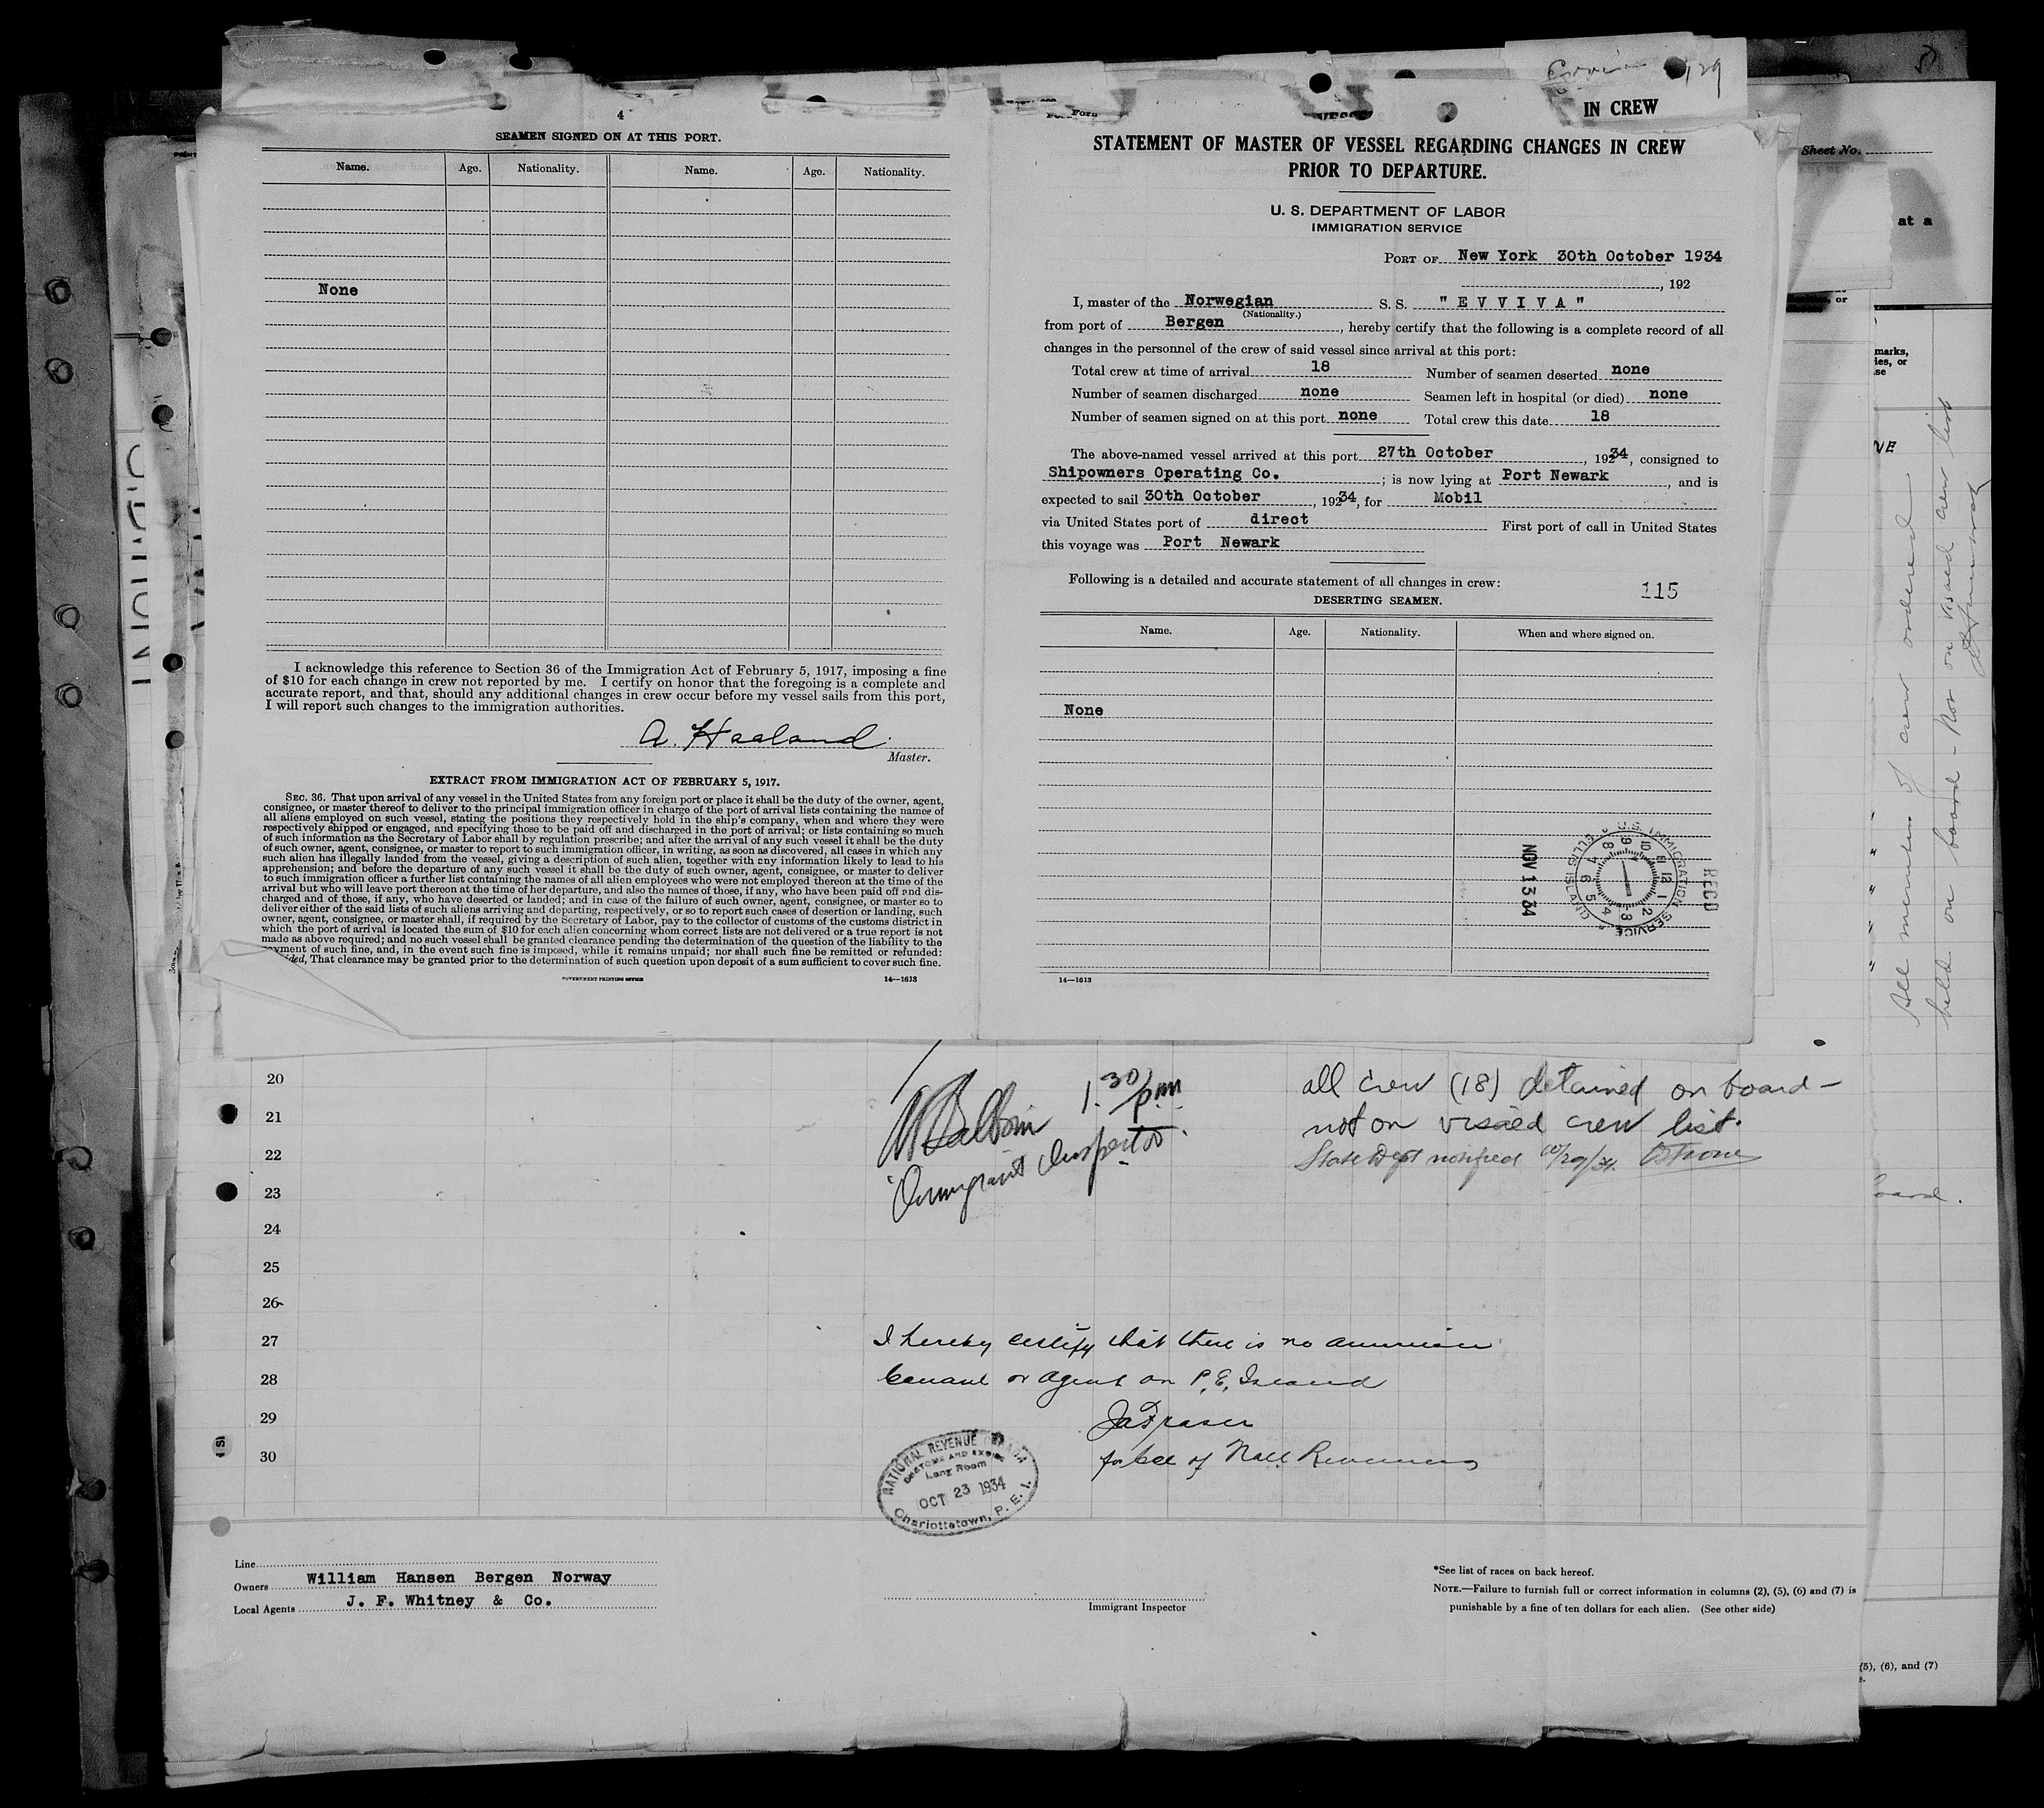 4
SEAMEN SIGNED ON AT THIS PORT.
Name. Age. Nationality. Name. Age. Nationality.
None
I acknowledge this reference to Section 36 of the Immigration Act of February 5, 1917, imposing a fine
of $10 for each change in crew not reported by me. I certify on honor that the foregoing is a complete and
accurate report, and that, should any additional changes in crew occur before my vessel sails from this port,
I will report such changes to the immigration authorities.
A. Haaland
Master.
EXTRACT FROM IMMIGRATION ACT OF FEBRUARY 5, 1917.
SEC. 36. That upon arrival of any vessel in the United States from any foreign port or place it shall be the duty of the owner, agent,
consignee, or master thereof to deliver to the principal immigration officer in charge of the port of arrival lists containing the names of
all aliens employed on such vessel, stating the positions they respectively hold in the ship's company, when and where they were
respectively shipped or engaged, and specifying those to be paid off and discharged in the port of arrival; or lists containing so much
of such information as the Secretary of Labor shall by regulation prescribe; and after the arrival of any such vessel it shall be the duty
of such owner, agent, consignee, or master to report to such immigration officer, in writing, as soon as discovered, all cases in which any
such alien has illegally landed from the vessel, giving a description of such alien, together with any information likely to lead to his
apprehension; and before the departure of any such vessel it shall be the duty of such owner, agent, consignee, or master to deliver
to such immigration officer a further list containing the names of all alien employees who were not employed thereon at the time of the
arrival but who will leave port thereon at the time of her departure, and also the names of those, if any, who have been paid off and dis-
charged and of those, if any, who have deserted or landed; and in case of the failure of such owner, agent, consignee, or master so to
deliver either of the said lists of such aliens arriving and departing, respectively, or so to report such cases of desertion or landing, such
owner, agent, consignee, or master shall, if required by the Secretary of Labor, pay to the collector of customs of the customs district in
which the port of arrival is located the sum of $10 for each alien concerning whom correct lists are not delivered or a true report is not
made as above required; and no such vessel shall be granted clearance pending the determination of the question of the liability to the
payment of such fine, and, in the event such fine is imposed, while it remains unpaid; nor shall such fine be remitted or refunded:
ided, That clearance may be granted prior to the determination of such question upon deposit of a sum sufficient to cover such fine.
GOVERNMENT PRINTING OFFICE 14—1613
129
IN CREW
Form
STATEMENT OF MASTER OF VESSEL REGARDING CHANGES IN CREW
PRIOR TO DEPARTURE.
U. S. DEPARTMENT OF LABOR
IMMIGRATION SERVICE
PORT OF New York 30th October 1934
, 192
I, master of the Norwegian S. S. "E V V I V A"
(Nationality.)
from port of Bergen, hereby certify that the following is a complete record of all
changes in the personnel of the crew of said vessel since arrival at this port:
Total crew at time of arrival 18 Number of seamen deserted none
Number of seamen discharged none Seamen left in hospital (or died) none
Number of seamen signed on at this port none Total crew this date 18
The above-named vessel arrived at this port 27th October, 19234, consigned to
Shipowners Operating Co.; is now lying at Port Newark, and is
expected to sail 30th October, 19234, for Mobil
via United States port of direct First port of call in United States
this voyage was Port Newark
Following is a detailed and accurate statement of all changes in crew: 115
DESERTING SEAMEN.
Name. Age. Nationality. When and where signed on.
None
RECD
U.S. IMMIGRATION SERVICE
ELLIS ISLAND
NOV 1 34
14—1613
Sheet No.
at a
or
marks,
ies, or
se
NE
All members of crew ordered
held on board - Not on visaed crew list
20
21
22
23
24
25
26
27
28
29
30
1.30 pm
Immigrant Inspector
all crew (18) detained on board —
not on visaed crew list.
State Dept notified 10/29/34.
oard.
I hereby certify that there is no American
Consul or Agent on P. E. Island
JaFraser
for Coll of Natl Revenue
NATIONAL REVENUE CANADA
CUSTOMS AND EXCISE
Long Room
OCT 23 1934
Charlottetown, P. E. I.
Line
Owners William Hansen Bergen Norway
Local Agents J. F. Whitney & Co.
Immigrant Inspector
*See list of races on back hereof.
NOTE.—Failure to furnish full or correct information in columns (2), (5), (6) and (7) is
punishable by a fine of ten dollars for each alien. (See other side)
(5), (6), and (7)